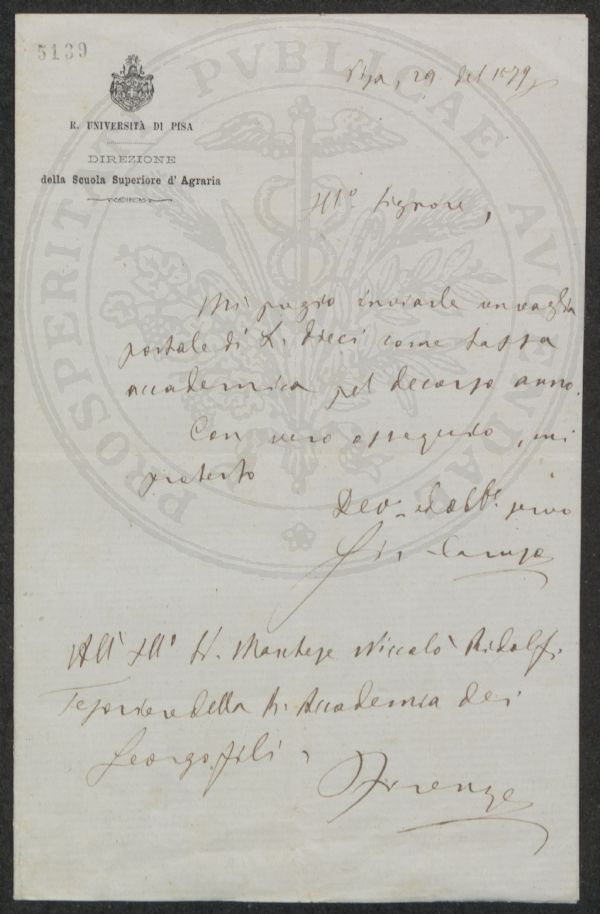 5139
PROSPERITATI PVBLICAE AVGENDAE
R. UNIVERSITÀ DI PISA
DIREZIONE
della Scuola Superiore d' Agraria
Pisa, 29 del 1879
Ill.o Signore,
Mi pregio inviarle un vaglia
postale di L. dieci come tassa
accademica pel decorso anno.
Con vero ossequio, mi
protesto
Dev. ed obb. servo
Caruso
All' Ill. S. Marchese Niccolò Ridolfi
Tesoriere della R. Accademia dei
Georgofili
Firenze